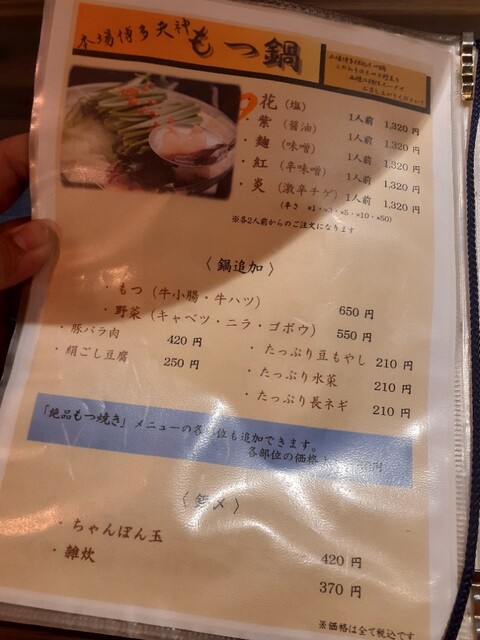 本場博多天神もつ鍋
花（塩） 1人前 1,320 円
・紫（醤油） 1人前 1,320 円
・麹（味噌） 1人前 1,320 円
・紅（辛味噌） 1人前 1,320 円
・炎（激辛チゲ） 1人前 1,320 円
（辛さ ×1・×3・×5・×10・×50）
※各2人前からのご注文になります
〈 鍋追加 〉
・もつ（牛小腸・牛ハツ） 650 円
・野菜（キャベツ・ニラ・ゴボウ） 550 円
・豚バラ肉 420 円
・絹ごし豆腐 250 円
・たっぷり豆もやし 210 円
・たっぷり水菜 210 円
・たっぷり長ネギ 210 円
「絶品もつ焼き」メニューの各部位も追加できます。
各部位の価格 円
〈 〆 〉
・ちゃんぽん玉 420 円
・雑炊 370 円
※価格は全て税込です